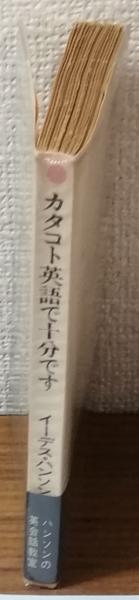 カタコト英語で十分です
イーデス・ハンソン
ハンソンの
英会話教室